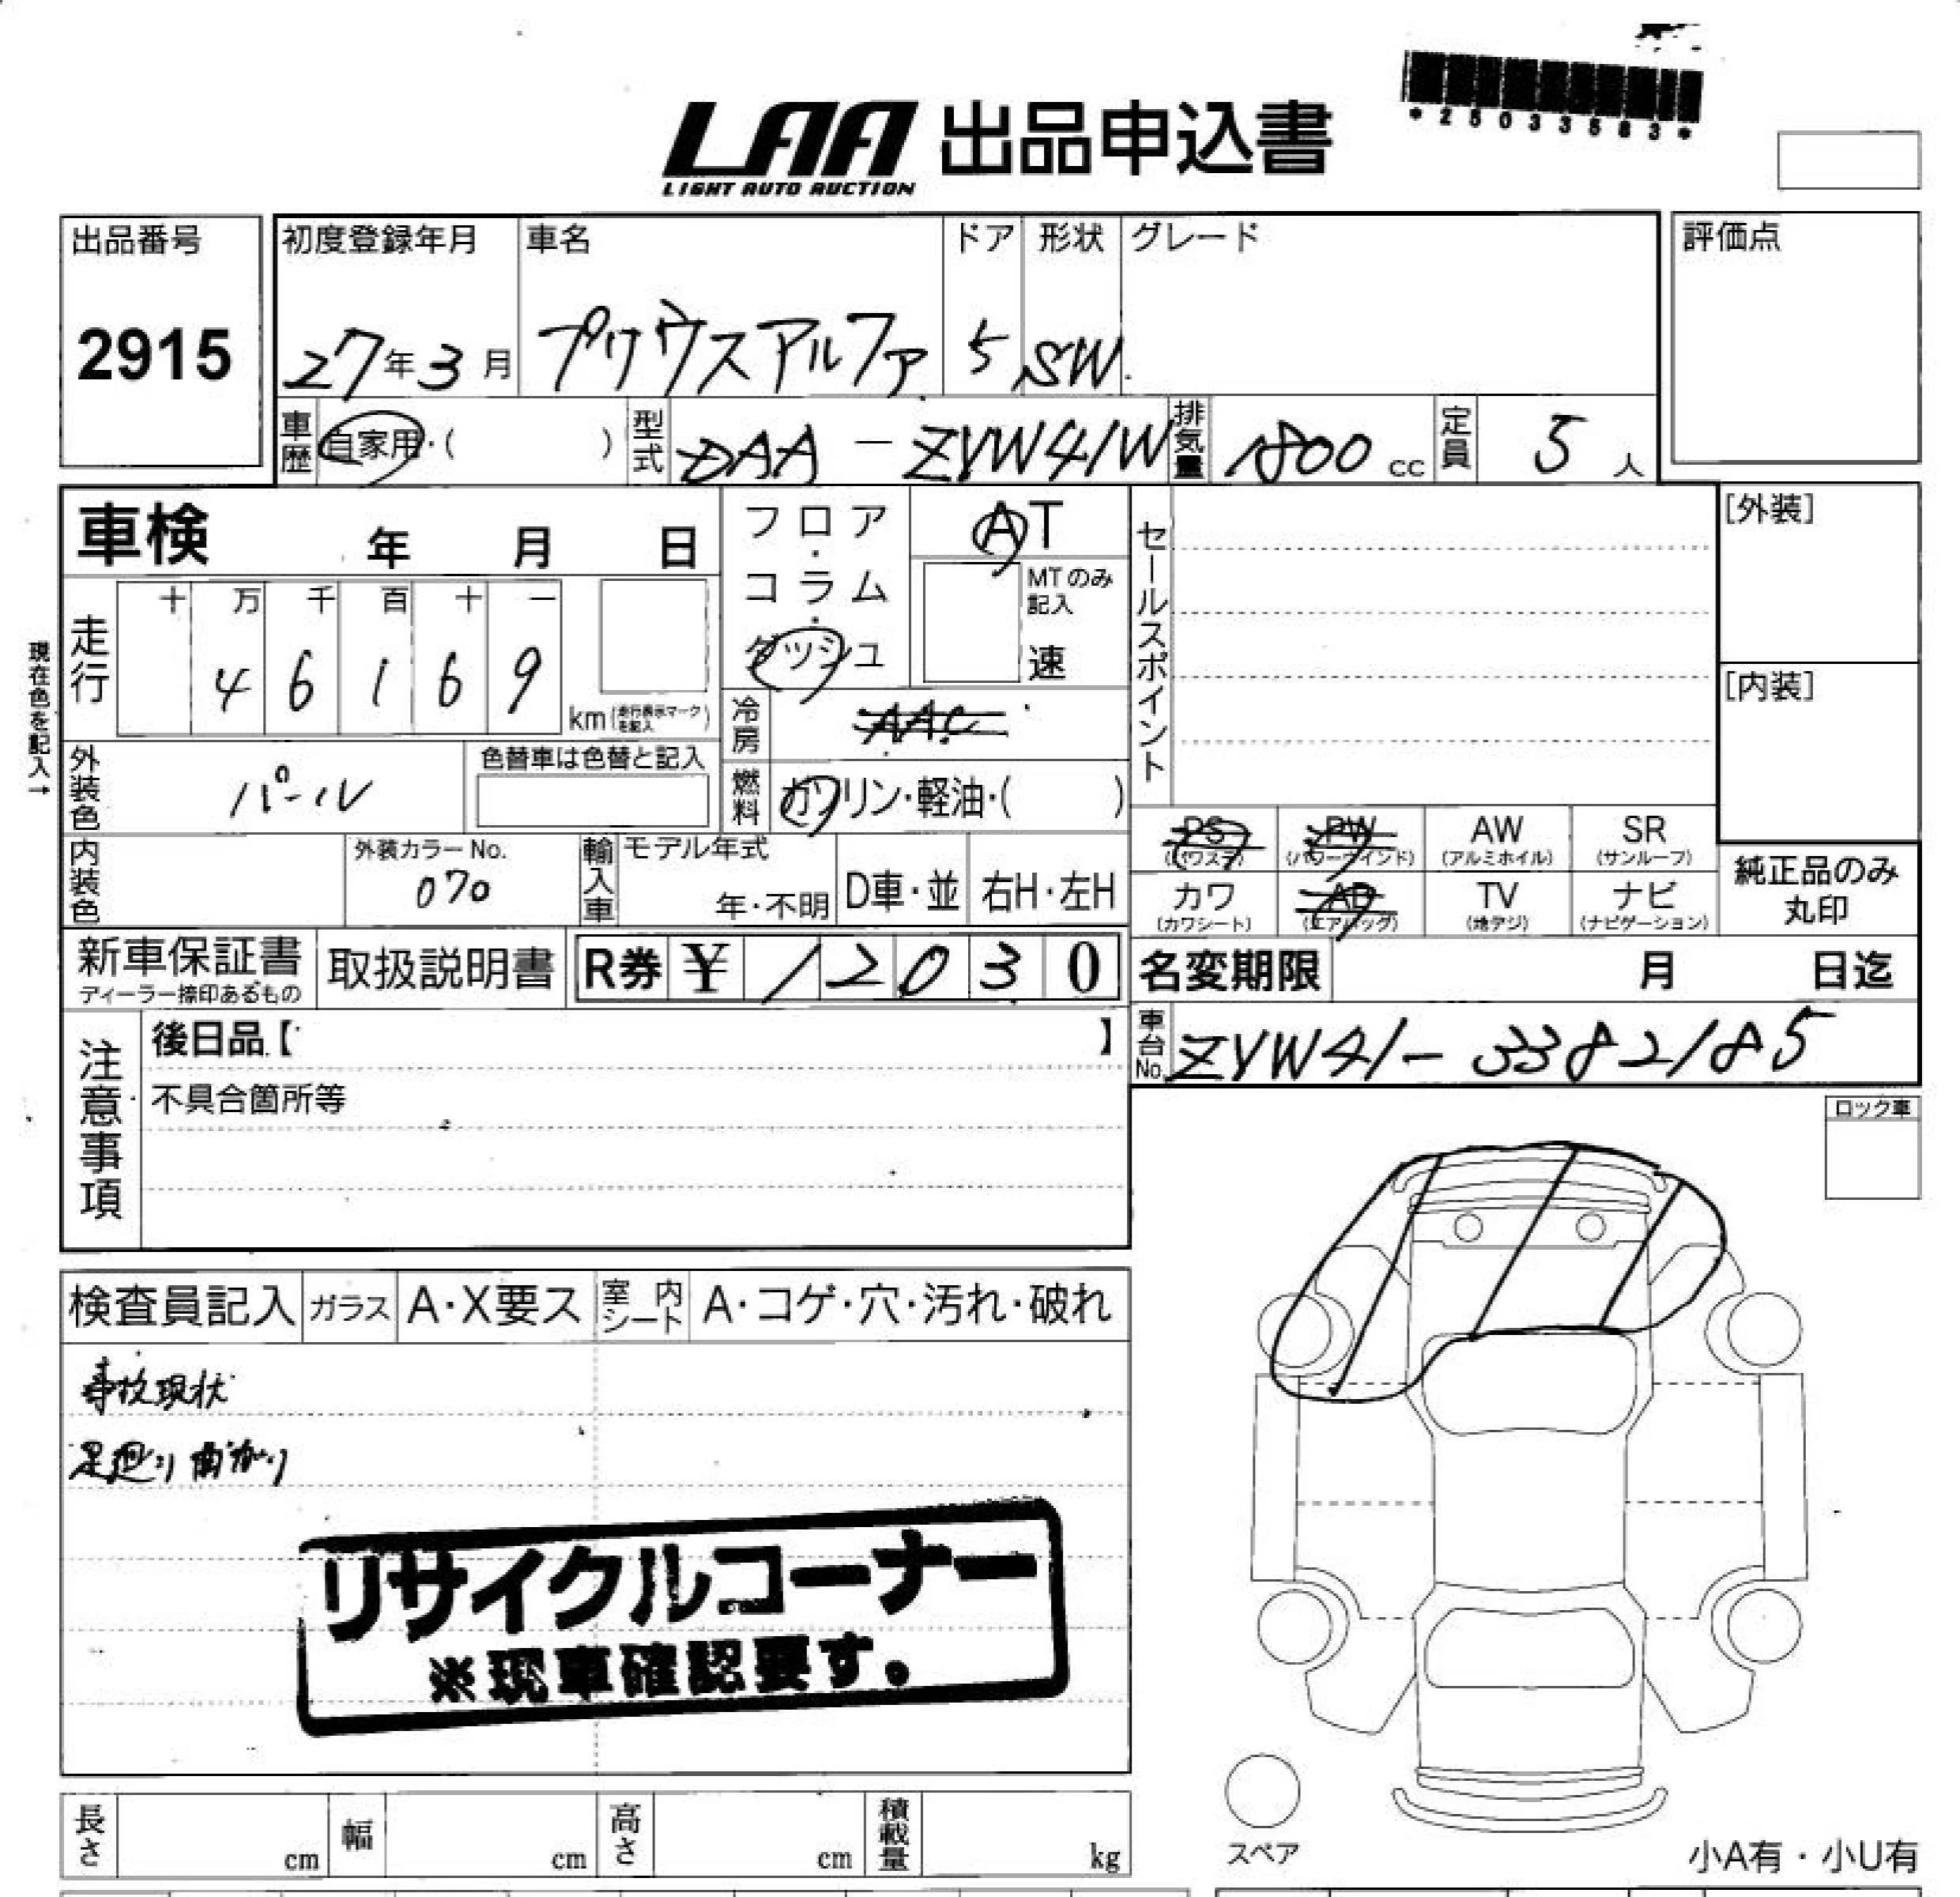 LAA 出品申込書
LIGHT AUTO AUCTION
*25033583*
出品番号
2915
初度登録年月
27年3月
車名
プリウスアルファ
ドア
5
形状
SW
グレード
評価点
車歴
自家用・( )
型式
DAA-ZVW41W
排気量
1800cc
定員
5人
車検 年 月 日
走行
十 万 千 百 十 一
4 6 1 6 9
km(走行表示マークを記入)
現在色を記入→
外装色
パール
色替車は色替と記入
内装色
外装カラーNo.
070
輸入車
モデル年式
年・不明
D車・並
右H・左H
フロア・コラム・ダッシュ
AT
MTのみ記入
速
冷房
AAC
燃料
ガソリン・軽油・( )
セールスポイント
[外装]
[内装]
PS
(パワステ)
PW
(パワーウインド)
AW
(アルミホイル)
SR
(サンルーフ)
カワ
(カワシート)
AB
(エアバッグ)
TV
(地デジ)
ナビ
(ナビゲーション)
純正品のみ
丸印
新車保証書
ディーラー捺印あるもの
取扱説明書
R券 ¥ 12030
名変期限 月 日迄
車台No.
ZVW41-3382185
注意事項
後日品【 】
不具合箇所等
ロック車
検査員記入
ガラス
A・X要ス
室内シート
A・コゲ・穴・汚れ・破れ
事故現状
足廻り曲がり
リサイクルコーナー
※現車確認要す。
長さ cm
幅 cm
高さ cm
積載量 kg
スペア
小A有・小U有